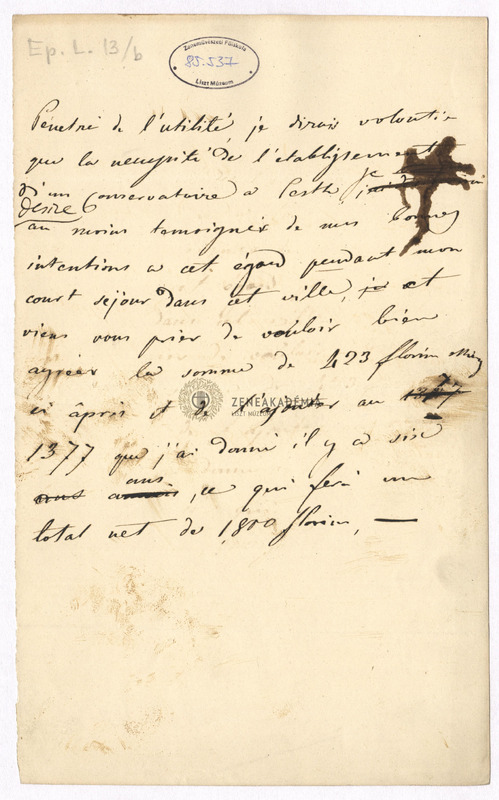 Ep. L. 13/b
Zeneművészeti Főiskola
85.537
Liszt Múzeum
Pénétré de l'utilité, je dirais volontie
que la necessité de l'établissement
d'un Conservatoire a Pesth, je
désire
au moins temoigner de mes bonnes
intentions a cet égard pendant mon
court séjour dans cet ville, je et
viens vous prier de vouloir bien
agréer la somme de 423 florins
ci après et de l'ajouter au 1377
1377 que j'ai donné il y a six
ans
, ce qui fera un
total net de 1,800 florins, —
ZENEAKADÉMIA
LISZT MÚZEUM